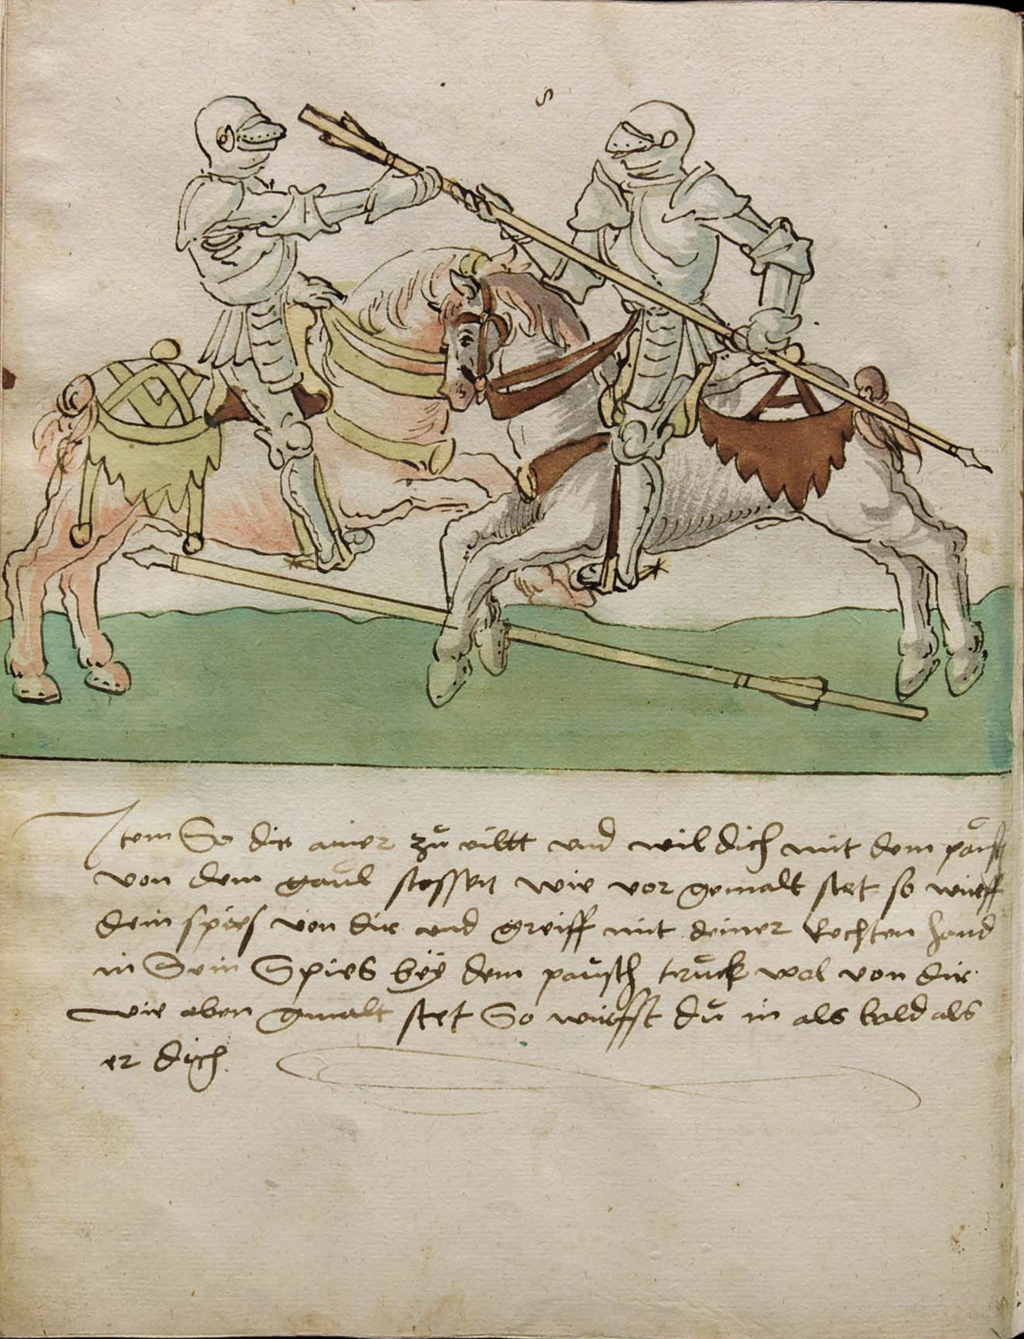 s
Item So dir ainer zů riltt vnd wil dich mit dem paůsch
von dem gaůl stossen wie vor gemalt stet so würff
dein spies von dir vnd greiff mit deiner Rechten hand
in Sein Spies beÿ dem paůsch trůck wol von dir
wie oben gmalt stet So würffst dů in als bald als
er dich